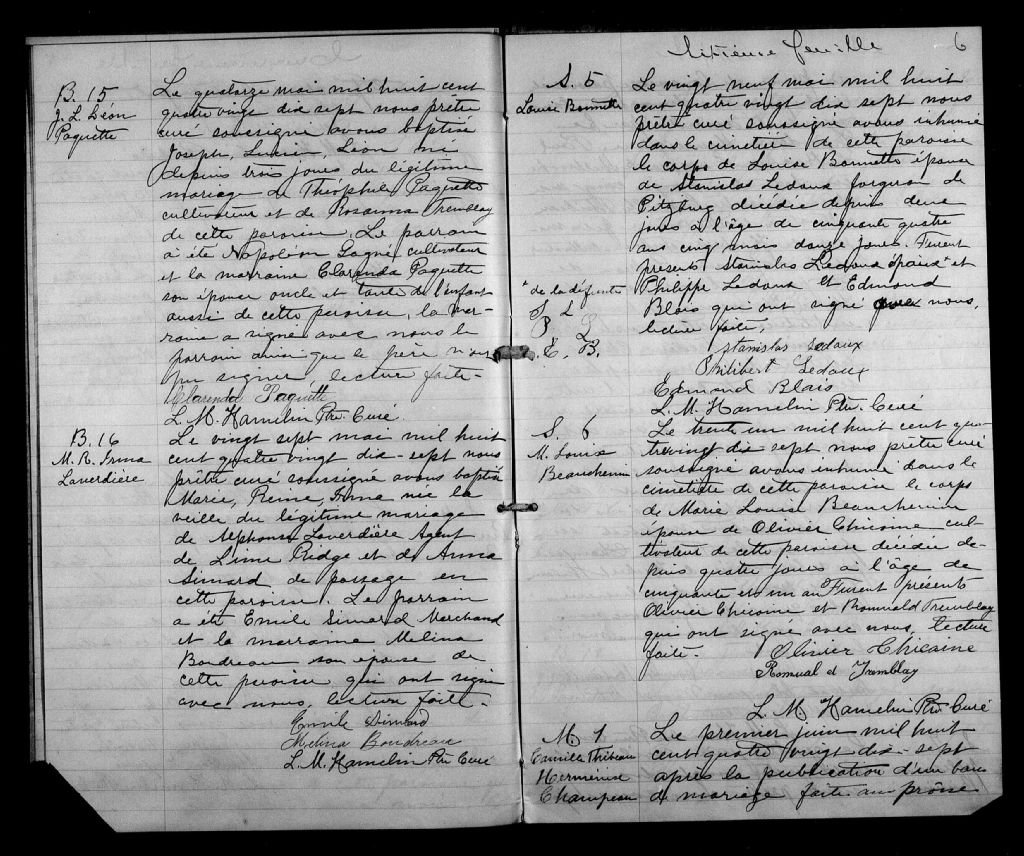 B. 15
J. L. Léon
Paquette
Le quatorze mai mil huit cent
quatre vingt dix sept nous prêtre
curé soussigné avons baptisé
Joseph, Lucien, Léon né
depuis trois jours du légitime
mariage de Théophile Paquette
cultivateur et de Rosanna Tremblay
de cette paroisse. Le parrain
a été Napoléon Gagné cultivateur
et la marraine Clarenda Paquette
son épouse oncle et tante de l'enfant
aussi de cette paroisse, la mar-
raine a signé avec nous le
parrain ainsi que le père n'ont
pu signer, lecture faite.
Clarenda Paquette
L. M. Hamelin Ptre Curé.
B. 16
M. R. Irma
Laverdière
Le vingt sept mai mil huit
cent quatre vingt dix-sept nous
prêtre curé soussigné avons baptisé
Marie, Reine, Irma née la
veille du légitime mariage
de Alphonse Laverdière Agent
de Lime Ridge et de Anna
Simard de passage en
cette paroisse. Le parrain
a été Emile Simard Marchand
et la marraine Melina
Boudreau son épouse de
cette paroisse qui ont signé
avec nous, lecture faite.
Emile Simard
Melina Boudreau
L. M. Hamelin Ptre Curé
Sixième feuille 6
S. 5
Louise Bonnette
Le vingt neuf mai mil huit
cent quatre vingt dix sept nous
prêtre curé soussigné avons inhumé
dans le cimetière de cette paroisse
le corps de Louise Bonnette épouse
de Stanislas Ledoux forgeron de
Pitzburg décédée depuis deux
jours à l'âge de cinquante quatre
ans cinq mois douze jours. Furent
présents Stanislas Ledoux époux* et
Philippe Ledoux et Edmond
Blais qui ont signé avec nous,
lecture faite.
* de la défunte
S. L.
P. L.
E. B.
Stanislas Ledoux
Philibert Ledoux
Edmond Blais
L. M. Hamelin Ptre Curé
S. 6
M. Louise
Beauchemin
Le trente un mil huit cent qua-
trevingt dix sept nous prêtre curé
soussigné avons inhumé dans le
cimetière de cette paroisse le corps
de Marie Louise Beauchemin
épouse de Olivier Chicoine cul-
tivateur de cette paroisse décédée de-
puis quatre jours à l'âge de
cinquante et un an Furent présents
Olivier Chicoine et Romuald Tremblay
qui ont signé avec nous, lecture
faite.
Olivier Chicoine
Romuald Tremblay
L. M. Hamelin Ptre Curé
M 1
Camille Thibeau
Herménise
Champeau
Le premier juin mil huit
cent quatre vingt dix-sept
après la publication d'un ban
de mariage faite au prône